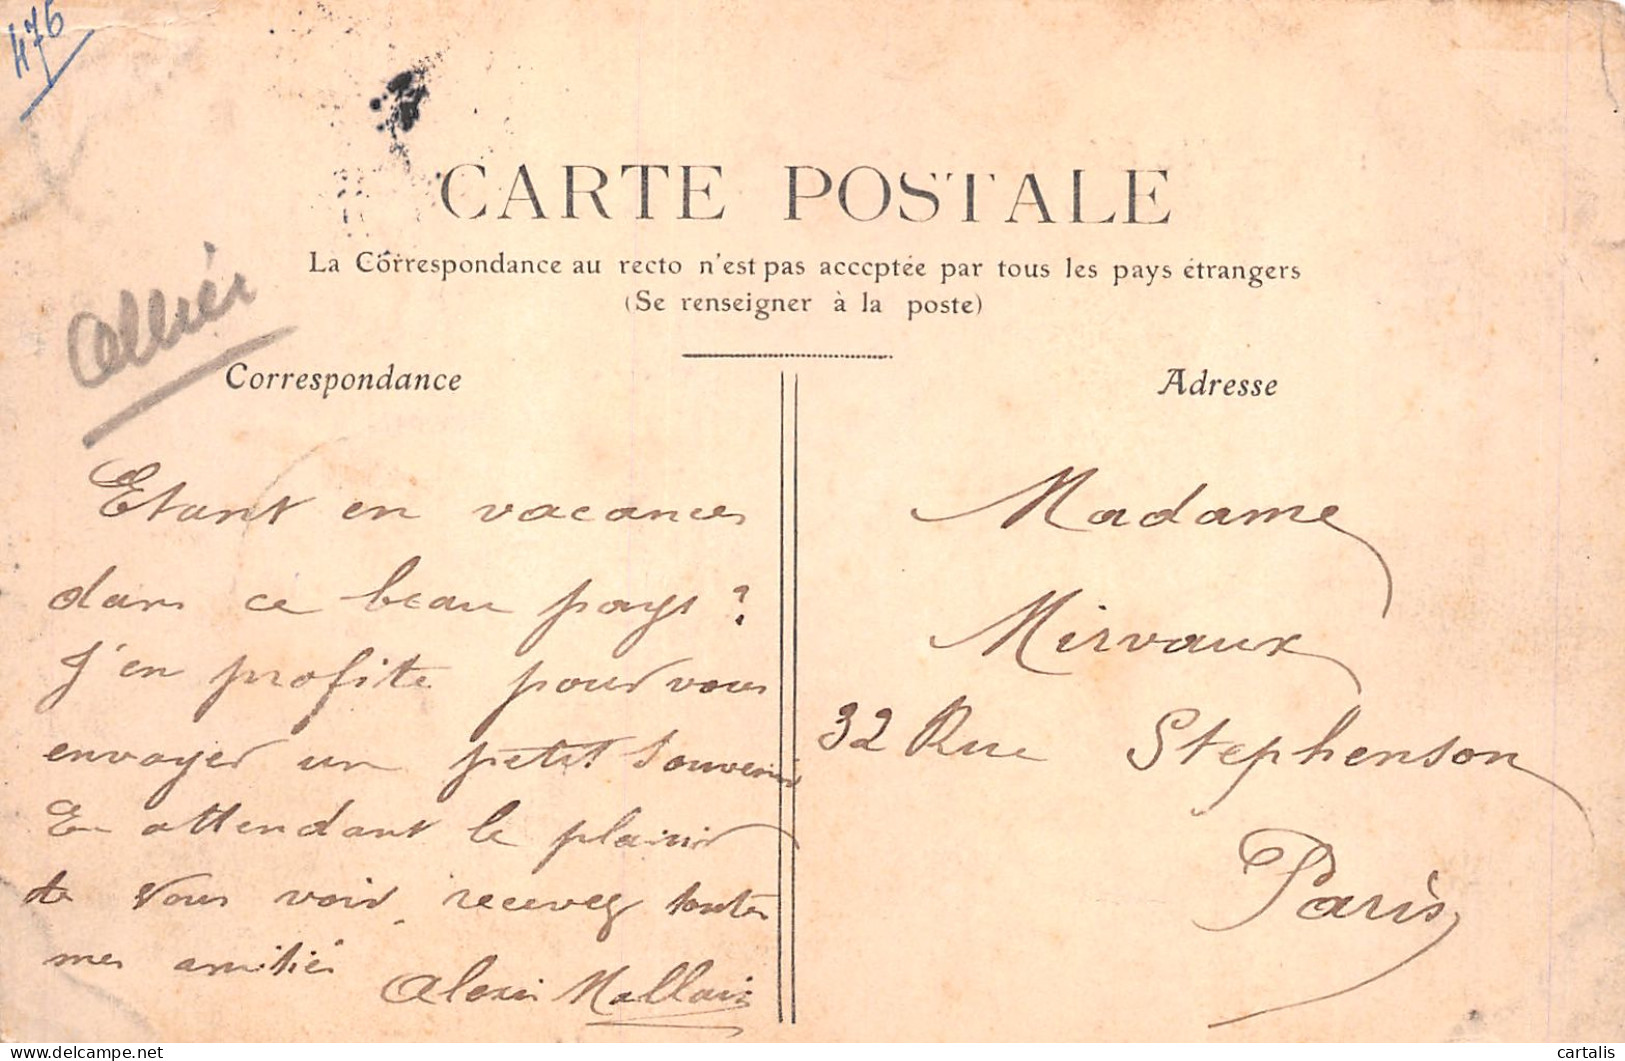 476
Allier
CARTE POSTALE
La Correspondance au recto n'est pas acceptée par tous les pays étrangers
(Se renseigner à la poste)
Correspondance
Etant en vacances
dans ce beau pays ?
J'en profite pour vous
envoyer un petit souvenir
En attendant le plaisir
de vous voir, recevez toutes
mes amitiés
Alexis Mallais
Adresse
Madame
Mirvaux
32 Rue Stephenson
Paris
www.delcampe.net
cartalis